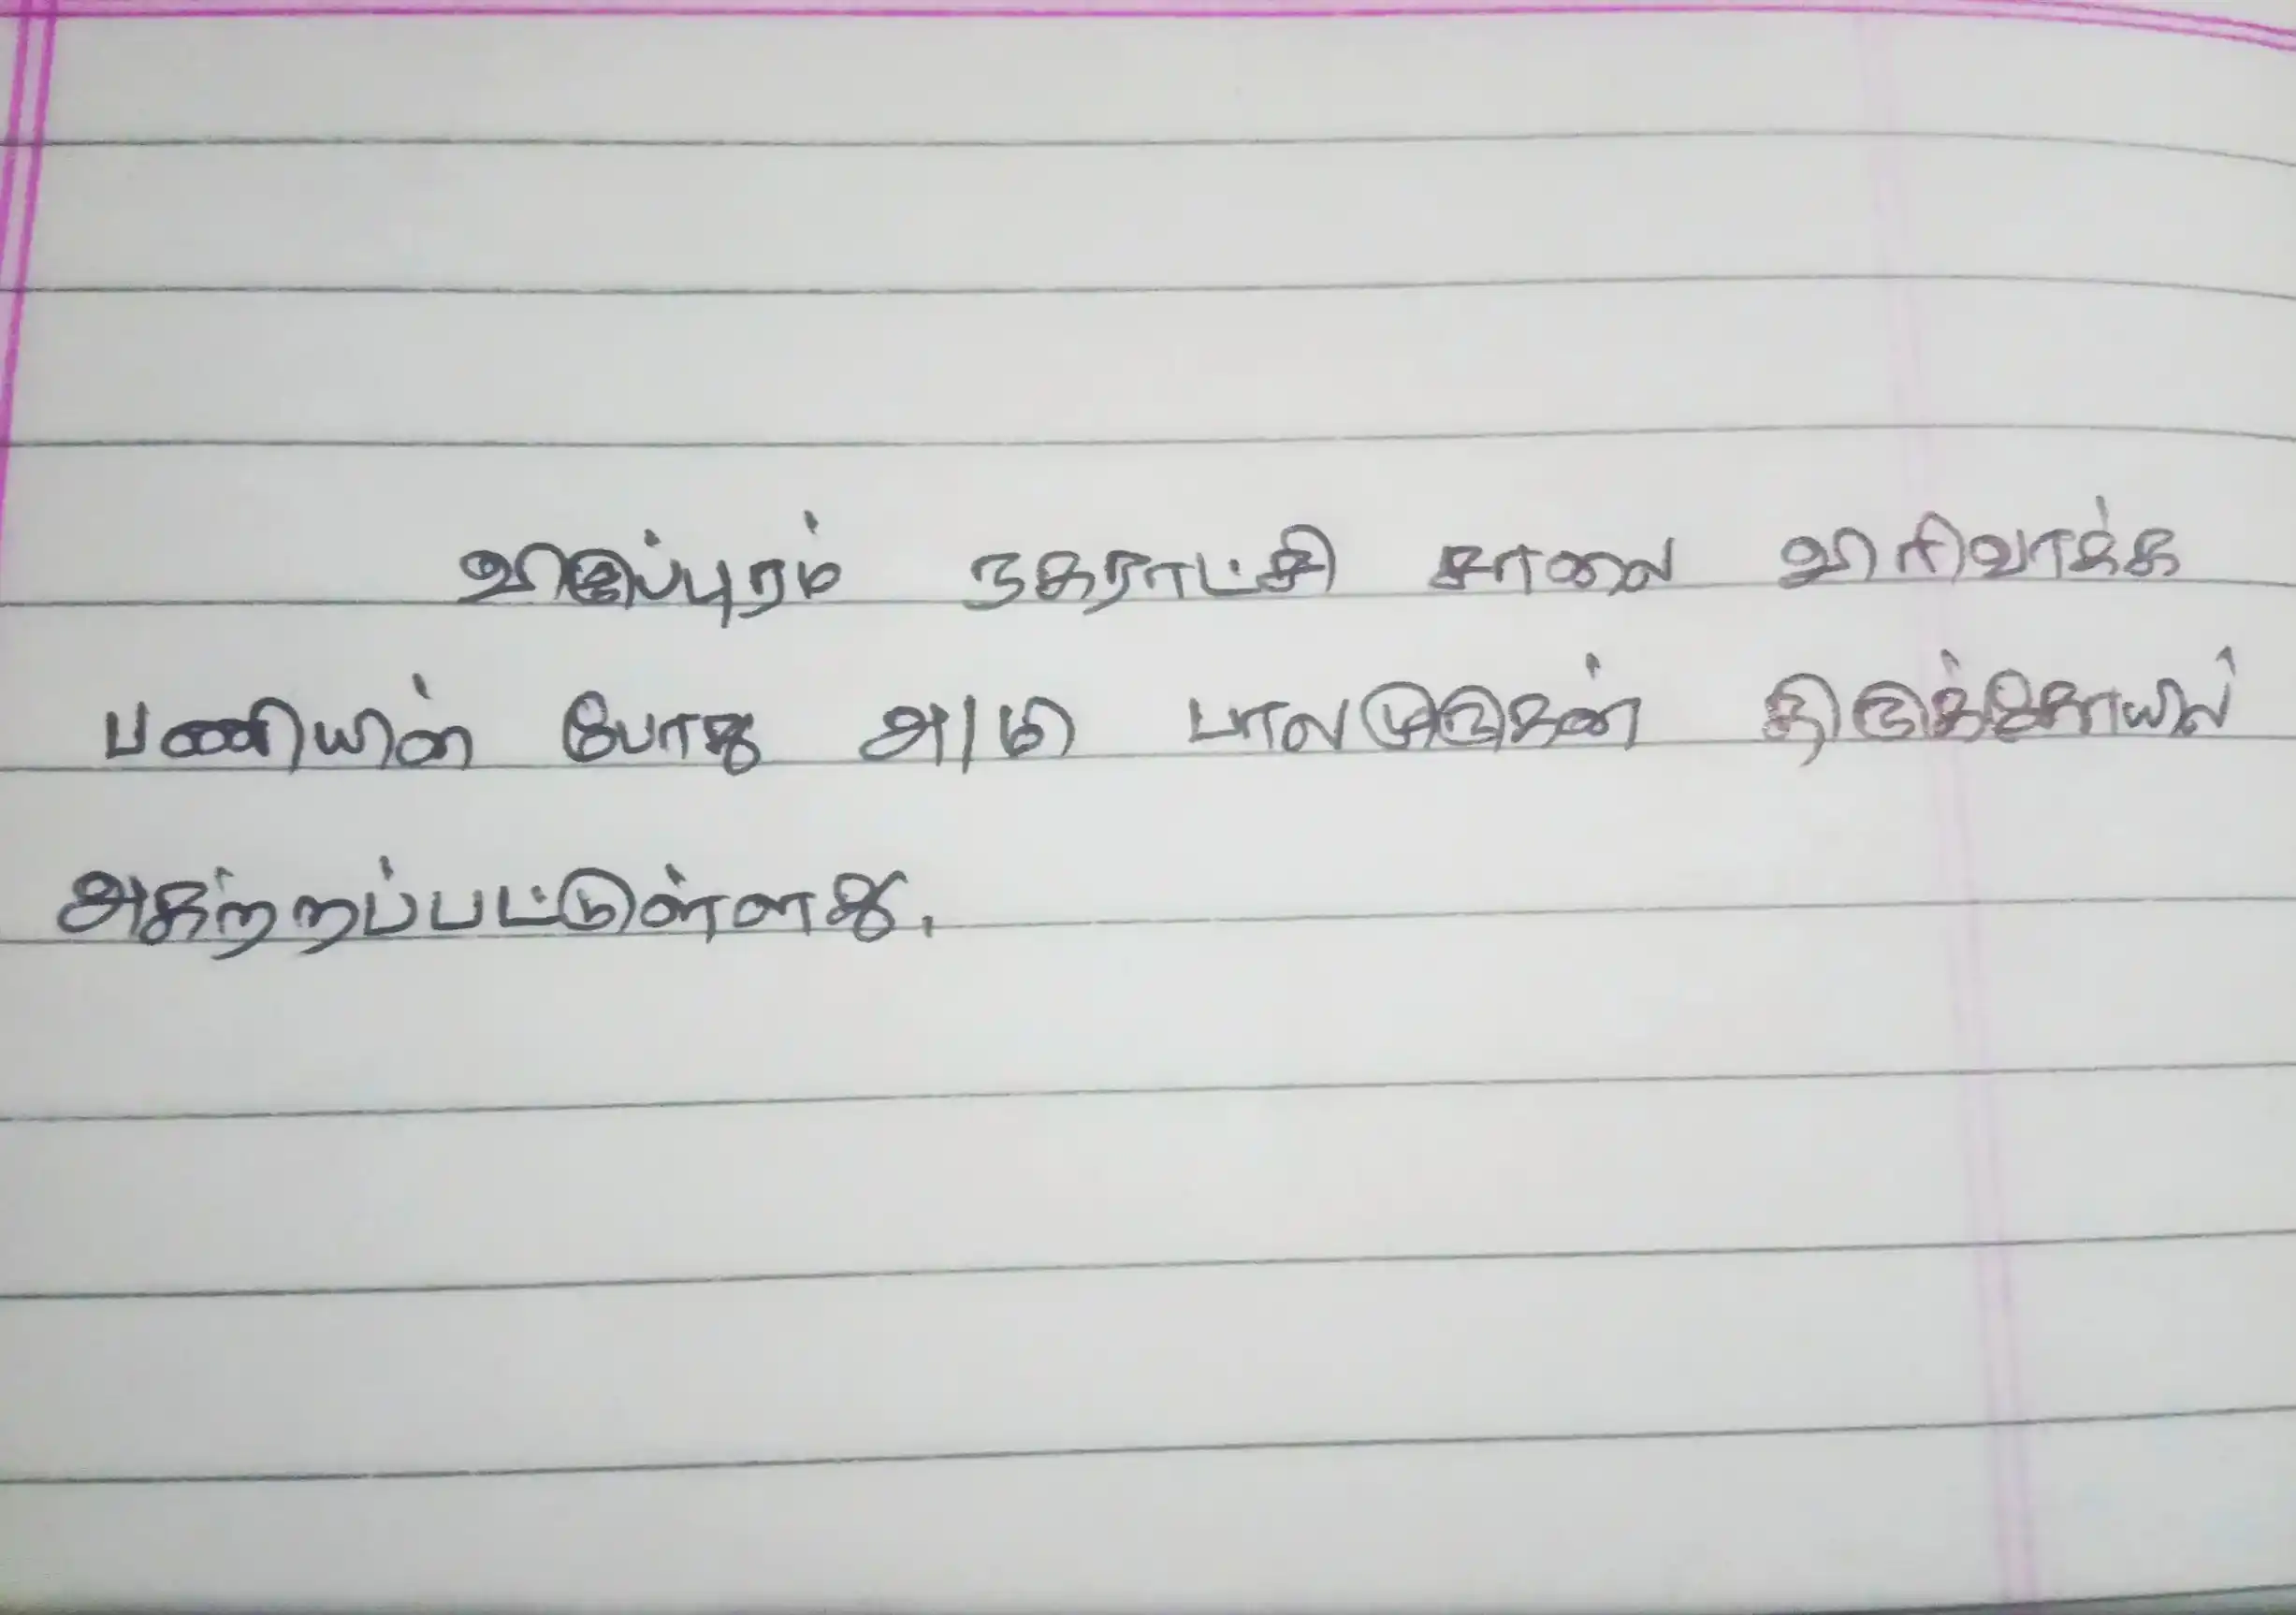 விழுப்புரம் நகராட்சி சாலை விரிவாக்க
பணியின் போது அ/மி பாலமுருகன் திருக்கோயில்
அகற்றப்பட்டுள்ளது.